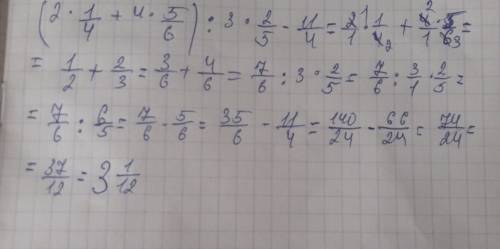 (2 · 1/4 + 4 · 5/6) : 3 · 2/5 - 11/4 = 2/1 · 1/4 + 4/1 · 5/6 =
= 1/2 + 2/3 = 3/6 + 4/6 = 7/6 : 3 · 2/5 = 7/6 : 3/1 · 2/5 =
= 7/6 : 6/5 = 7/6 · 5/6 = 35/6 - 11/4 = 140/24 - 66/24 = 74/24 =
= 37/12 = 3 1/12